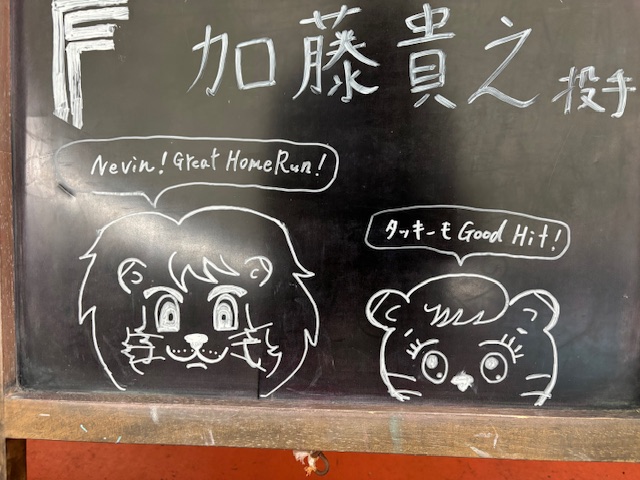 F 加藤貴之 投手
Nevin! Great HomeRun!
タッキーもGood Hit!